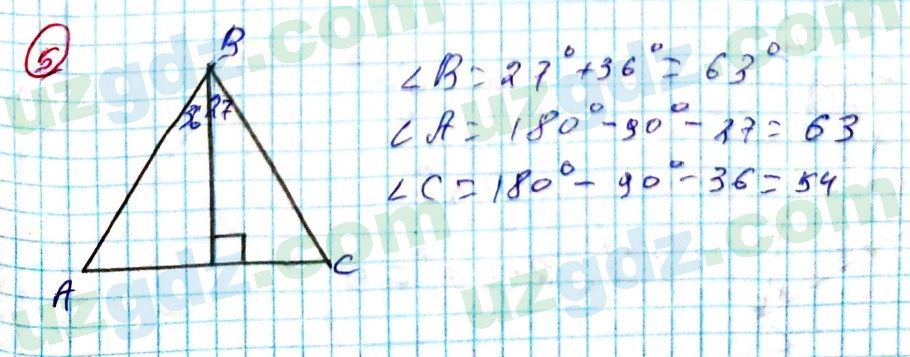 5
B
36 27
A
C
∠B = 27° + 36° = 63°
∠A = 180° - 90° - 27 = 63
∠C = 180° - 90° - 36 = 54
uzgdz.com
uzgdz.com
uzgdz.com
uzgdz.com